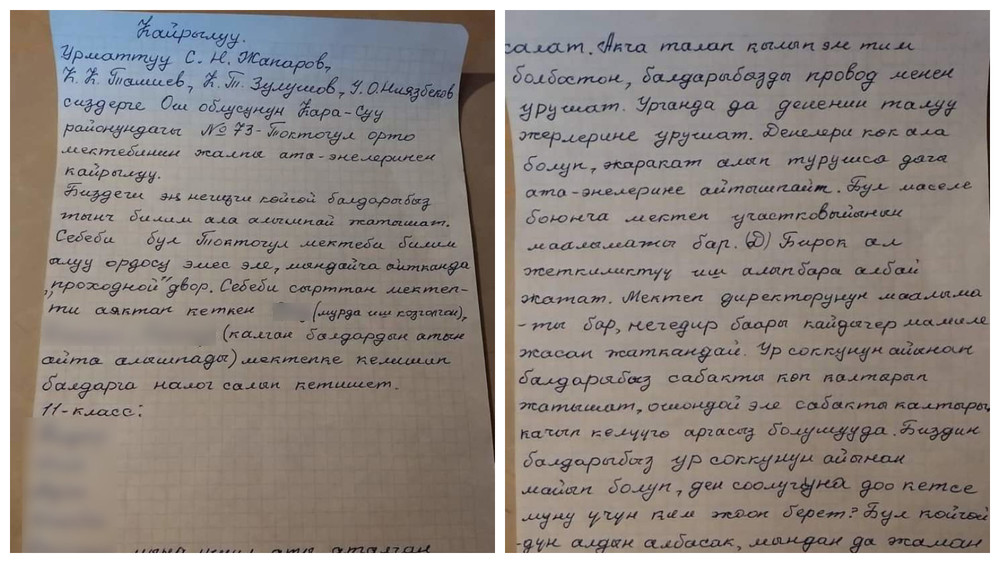 Кайрылуу.
Урматтуу С. Н. Жапаров,
К. К. Ташиев, К. Т. Зулушов, У. О. Ниязбеков
сиздерге Ош облусунун Кара-Суу
районундагы №73-Токтогул орто
мектебинин жалпы ата-энелеринен
кайрылуу.
Биздеги эң негизги көйгөй балдарыбыз
тынч билим ала алышпай жатышат.
Себеби бул Токтогул мектеби билим
алуу ордосу эмес эле, мындайча айтканда
"проходной" двор. Себеби сырттан мектеп-
ти аяктап кеткен (мурда иш козголгон),
(калган балдардын атын
айта алышпады) мектепке келишип
балдарга налог салып кетишет.
11-класс:
аты аталган
салат. Акча талап кылып эле тим
болбостон, балдарыбызды провод менен
урушат. Урганда да дененин талуу
жерлерине урушат. Денелери көк ала
болуп, жаракат алып турушса дагы
ата-энелерине айтышпайт. Бул маселе
боюнча мектеп участковыйынын
маалыматы бар. (Д) Бирок ал
жеткиликтүү иш алып бара албай
жатат. Мектеп директорунун маалыма
-ты бар, негедир баары кайдыгер мамиле
жасап жаткандай. Ур соккунун айынан
балдарыбыз сабакты көп калтырып
жатышат, ошондой эле сабакты калтырып,
качып келүүгө аргасыз болушууда. Биздин
балдарыбыз ур соккунун айынан
майып болуп, ден соолугуна доо кетсе
муну үчүн ким жооп берет? Бул көйгөй
-дүн алдын албасак, мындан да жаман